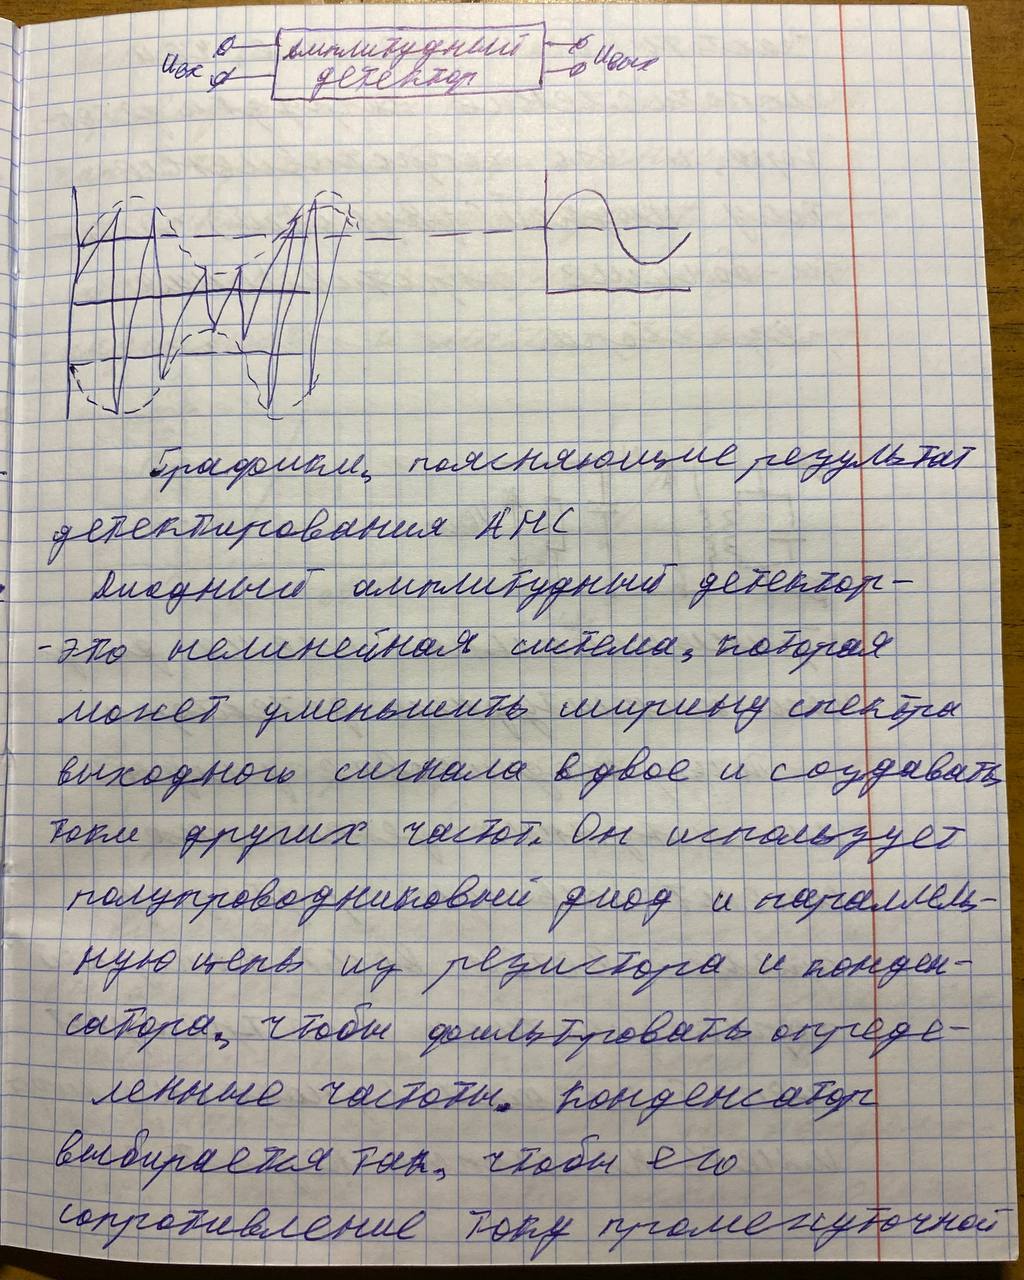 Uвх
Амплитудный
детектор
Uвых
Графики, поясняющие результат
детектирования АМС
Диодный амплитудный детектор-
-это нелинейная система, которая
может уменьшить ширину спектра
выходного сигнала вдвое и создавать
токи других частот. Он использует
полупроводниковый диод и параллель-
ную цепь из резистора и конден-
сатора, чтобы фильтровать опреде-
ленные частоты. Конденсатор
выбирается так, чтобы его
сопротивление току промежуточной